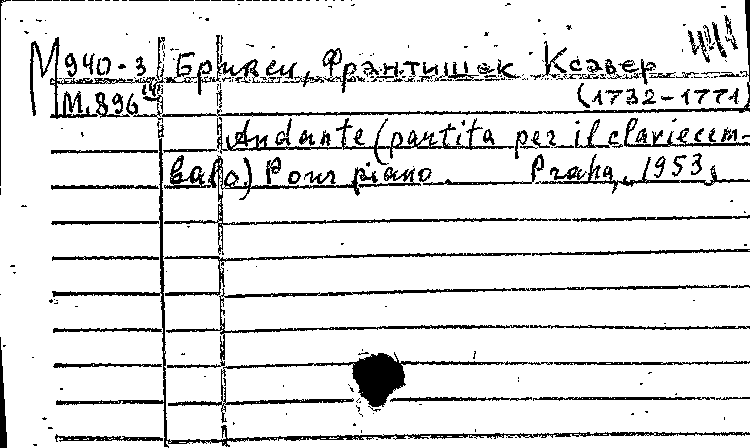 М940-3 Брикси, Франтишек Ксавер
М.896 (1732-1771)
Andante (partita per il claviecem-
balo.) Pour piano. Praha, 1953,